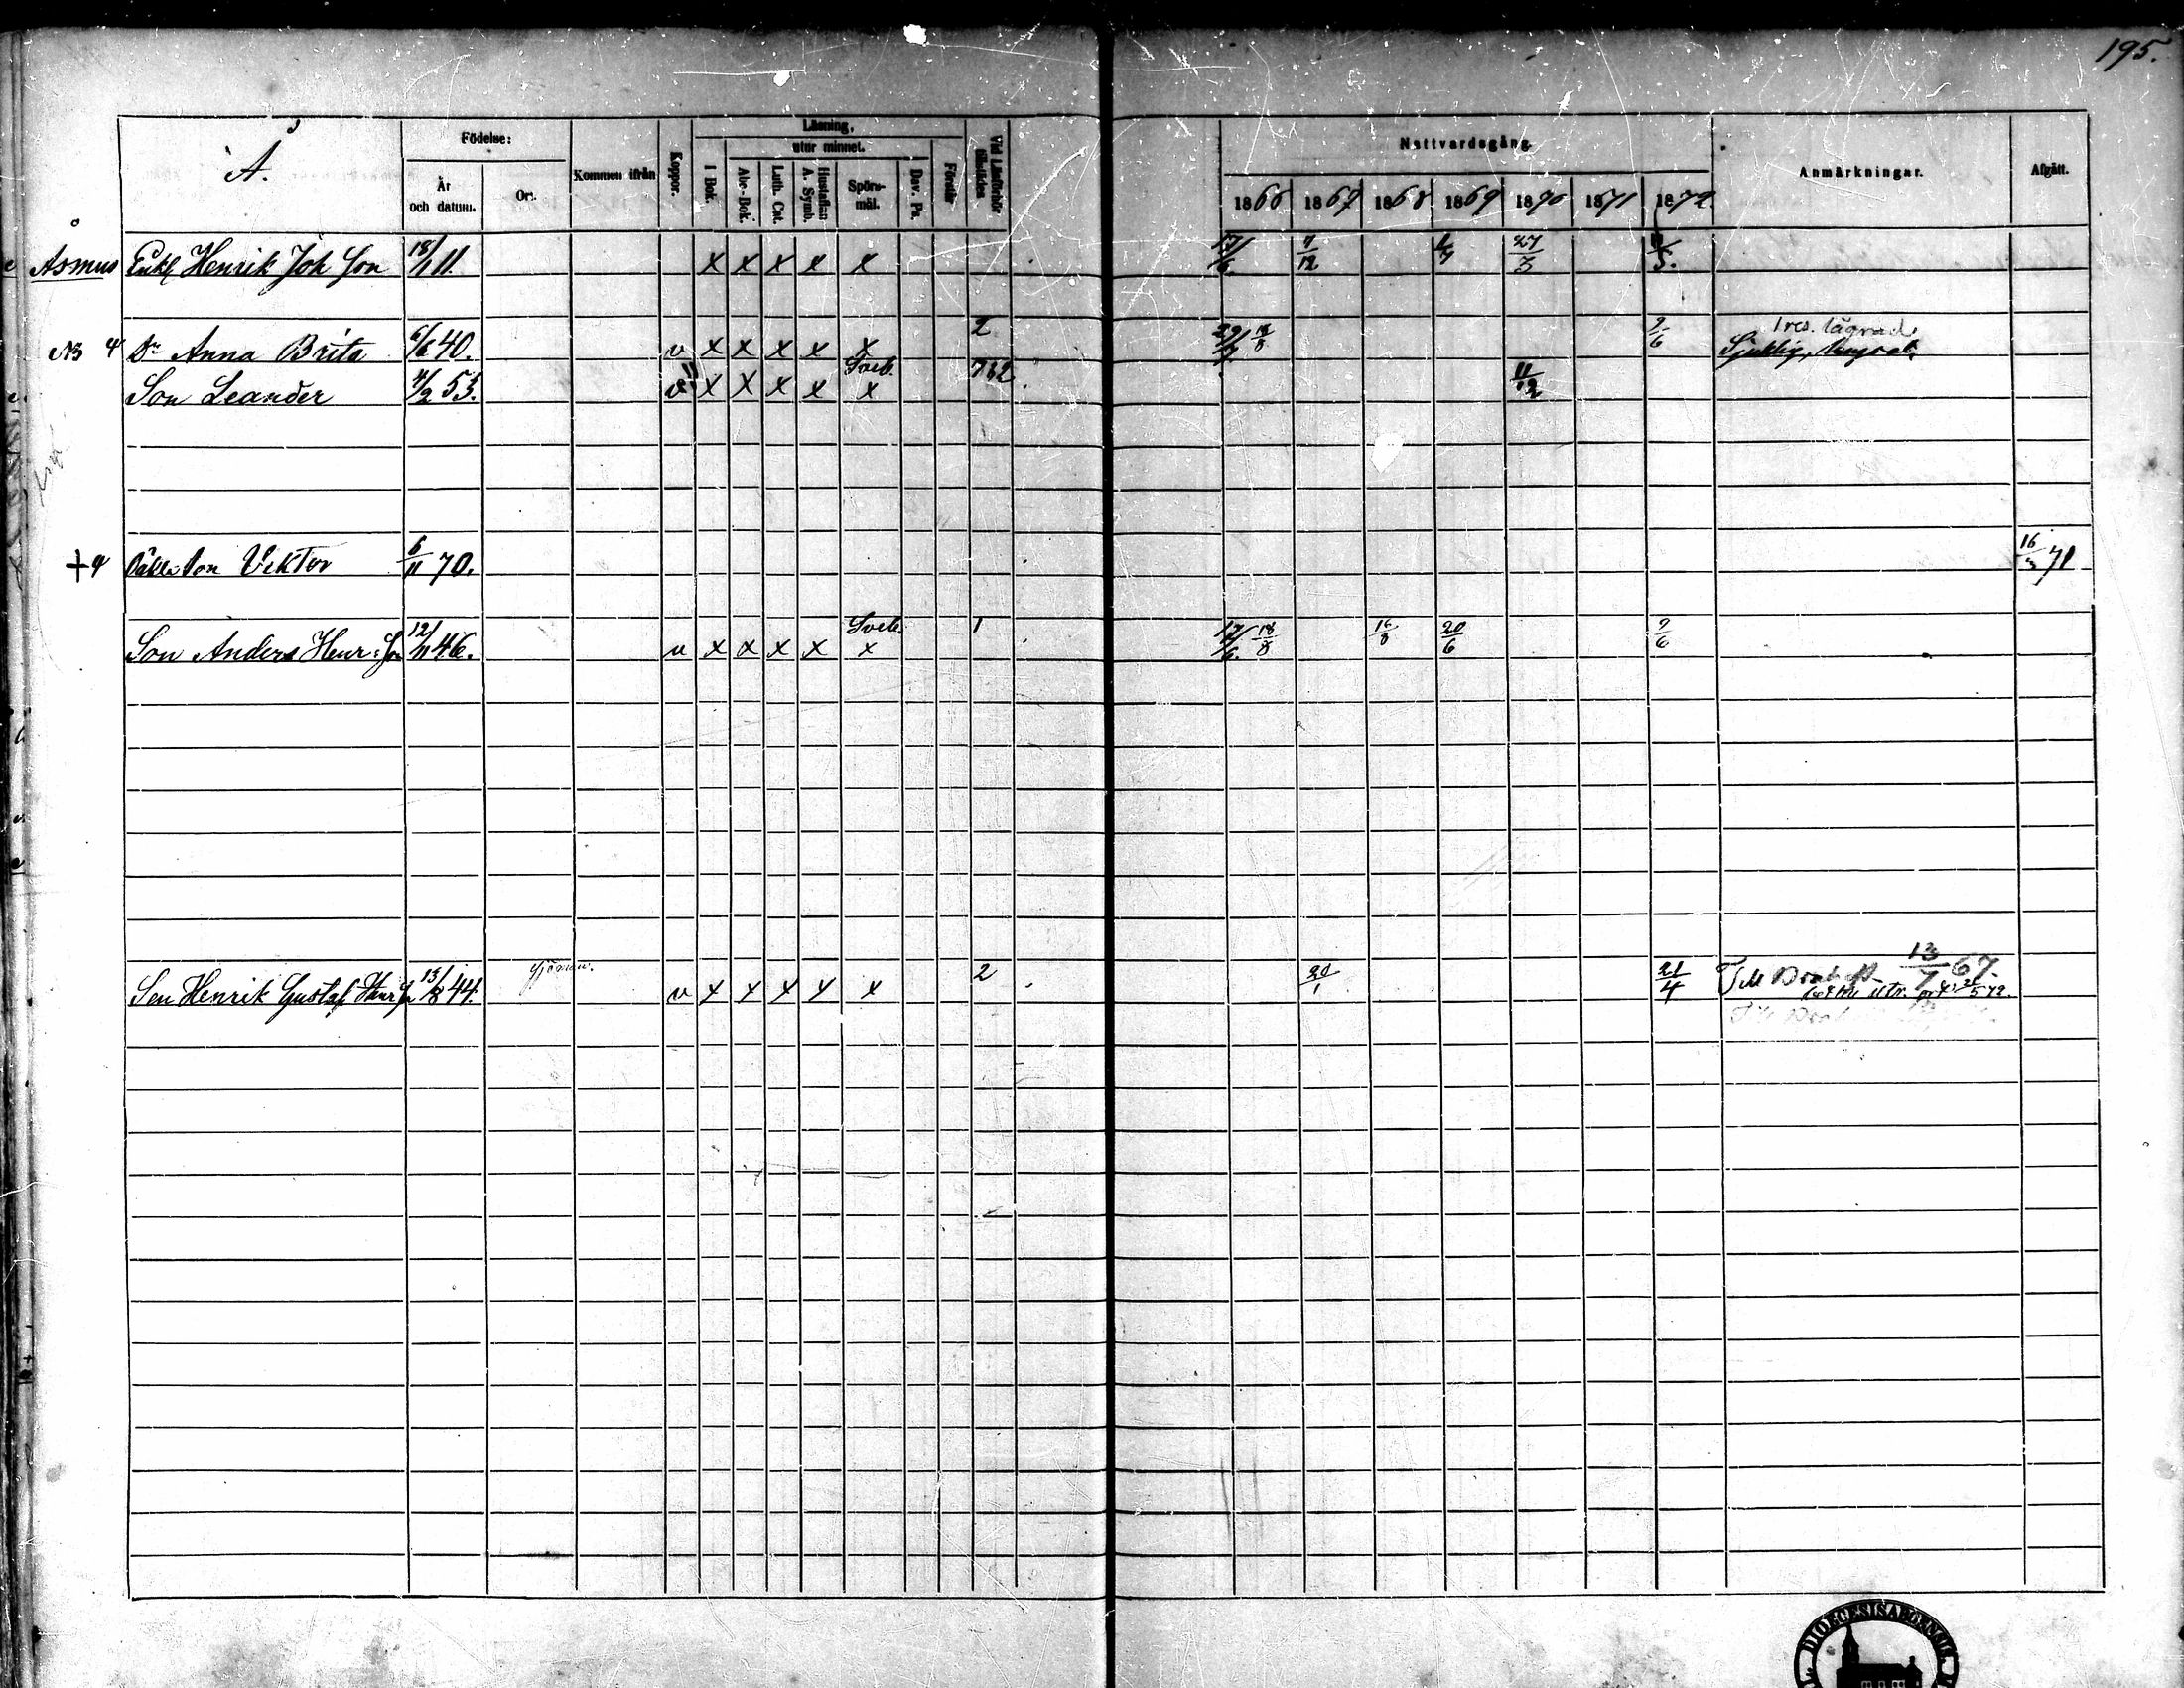 195.
Å.
Födelse:
År och datum.
Ort.
Kommen ifrån
Koppor.
Läsning,
utur minnet.
I Bok.
Abc-Bok.
Luth. Cat.
Hustaflan A. Symb.
Spörsmål.
Dav. Ps.
Förstår
Vid Läsförhör tillstädes
Nattvardsgång.
1866 1867 1868 1869 1870 1871 1872
Anmärkningar.
Afgått.
Åsmus Enkl Henrik Joh Son 18/1 11. x x x x x 17/6. 7/12 27/3
2
NB 4 Dr Anna Brita 6/6 40. v x x x x x 18/8 2/6 1 res. lägrad. Sjuklig,
Son Leander 4/2 53. v x x x x Sveb. x 11/12
+ 4 Oäkta Son Viktor 6/11 70. 16/3 71
Son Anders Henr: Son 12/11 46. v x x x x Sveb. x 1 17/6. 18/8 16/8 20/6 2/6
Son Henrik Gustaf Henr Sn 13/8 44. Sjöman. v x x x x x 2 20/1 21/4 Till 13/7 67.
DIOECESIS ABOENSIS.